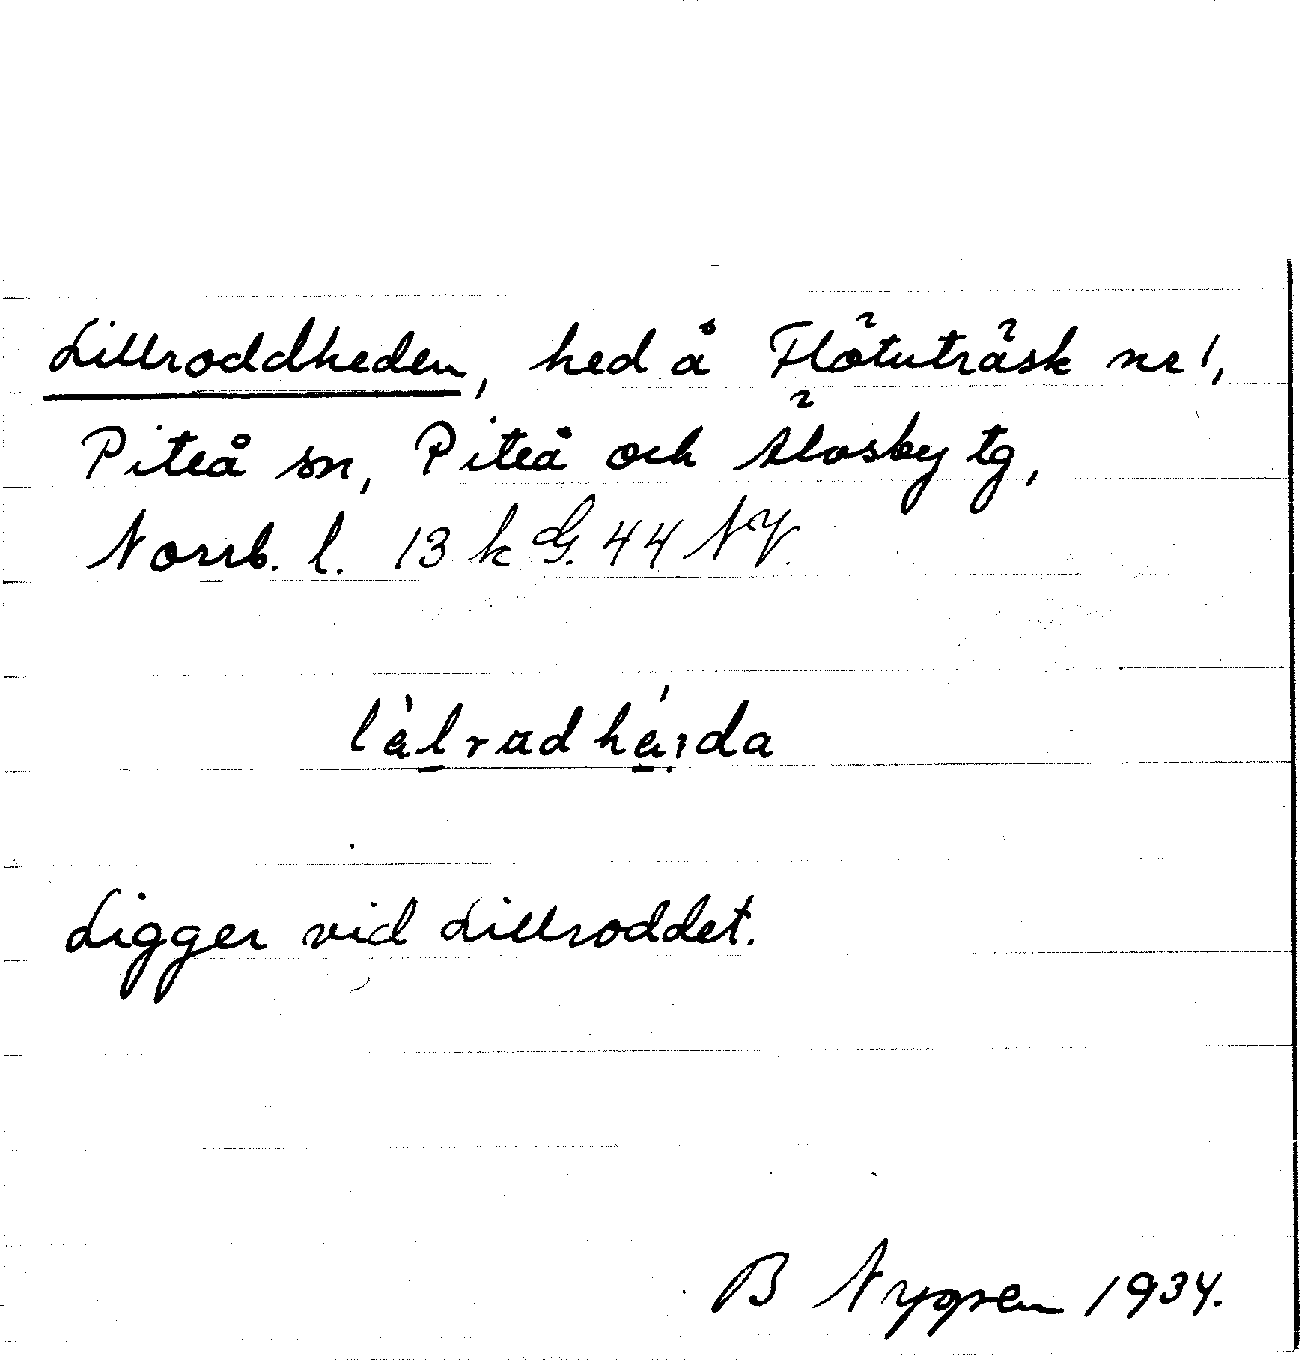 Lillroddheden, hed å Flötuträsk nr 1,
Piteå sn, Piteå och Älvsby tg,
Norrb. l. 13 k G. 44 NV.
Ligger vid Lillroddet.
B Nygren 1934.